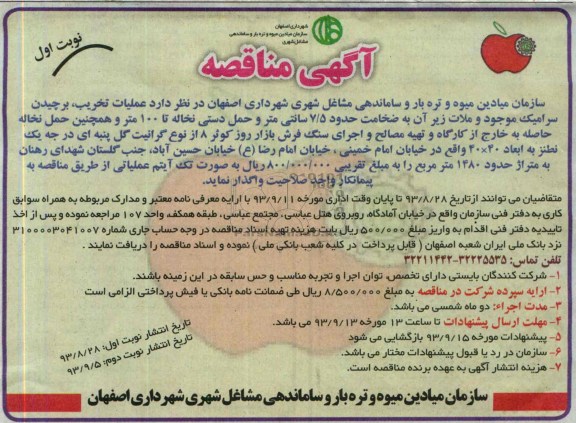 شهرداری اصفهان
سازمان میادین میوه و تره بار و ساماندهی
مشاغل شهری
نوبت اول
آگهی مناقصه
سازمان میادین میوه و تره بار و ساماندهی مشاغل شهری شهرداری اصفهان در نظر دارد عملیات تخریب، برچیدن
سرامیک موجود و ملات زیر آن به ضخامت حدود ۷/۵ سانتی متر و حمل دستی نخاله تا ۱۰۰ متر و همچنین حمل نخاله
حاصله به خارج از کارگاه و تهیه مصالح و اجرای سنگ فرش بازار روز کوثر ۸ از نوع گرانیت گل پنبه ای در جه یک
نطنز به ابعاد ۴۰×۴۰ واقع در خیابان امام خمینی ، خیابان امام رضا (ع) خیابان حسین آباد، جنب گلستان شهدای رهنان
به متراژ حدود ۱۴۸۰ متر مربع را به مبلغ تقریبی ۸۰۰/۰۰۰/۰۰۰ ریال به صورت تک آیتم عملیاتی از طریق مناقصه به
پیمانکار واجد صلاحیت واگذار نماید.
متقاضیان می توانند از تاریخ ۹۳/۸/۲۸ تا پایان وقت اداری مورخه ۹۳/۹/۱۱ با ارایه معرفی نامه معتبر و مدارک مربوطه به همراه سوابق
کاری به دفتر فنی سازمان واقع در خیابان آمادگاه، روبروی هتل عباسی، مجتمع عباسی، طبقه همکف، واحد ۱۰۷ مراجعه نموده و پس از اخذ
تاییدیه دفتر فنی اقدام به واریز مبلغ ۵۰۰/۰۰۰ ریال بابت هزینه تهیه اسناد مناقصه در وجه حساب جاری شماره ۳۱۰۰۰۰۳۰۴۱۰۰۷
نزد بانک ملی ایران شعبه اصفهان ( قابل پرداخت در کلیه شعب بانکی ملی ) نموده و اسناد مناقصه را دریافت نمایند .
تلفن تماس: ۳۲۲۲۵۵۳۵-۳۲۲۱۱۴۴۲
۱- شرکت کنندگان بایستی دارای تخصص، توان اجرا و تجربه مناسب و حس سابقه در این زمینه باشند.
۲- ارایه سپرده شرکت در مناقصه به مبلغ ۸/۵۰۰/۰۰۰ ریال طی ضمانت نامه بانکی یا فیش پرداختی الزامی است
۳- مدت اجراء: دو ماه شمسی می باشد.
۴- مهلت ارسال پیشنهادات تا ساعت ۱۳ مورخه ۹۳/۹/۱۳ می باشد.
۵- پیشنهادات مورخه ۹۳/۹/۱۵ بازگشایی می شود
۶- سازمان در رد یا قبول پیشنهادات مختار می باشد.
۷- هزینه انتشار آگهی به عهده برنده مناقصه است.
تاریخ انتشار نوبت اول: ۹۳/۸/۲۸
تاریخ انتشار نوبت دوم: ۹۳/۹/۵
سازمان میادین میوه و تره بار و ساماندهی مشاغل شهری شهرداری اصفهان